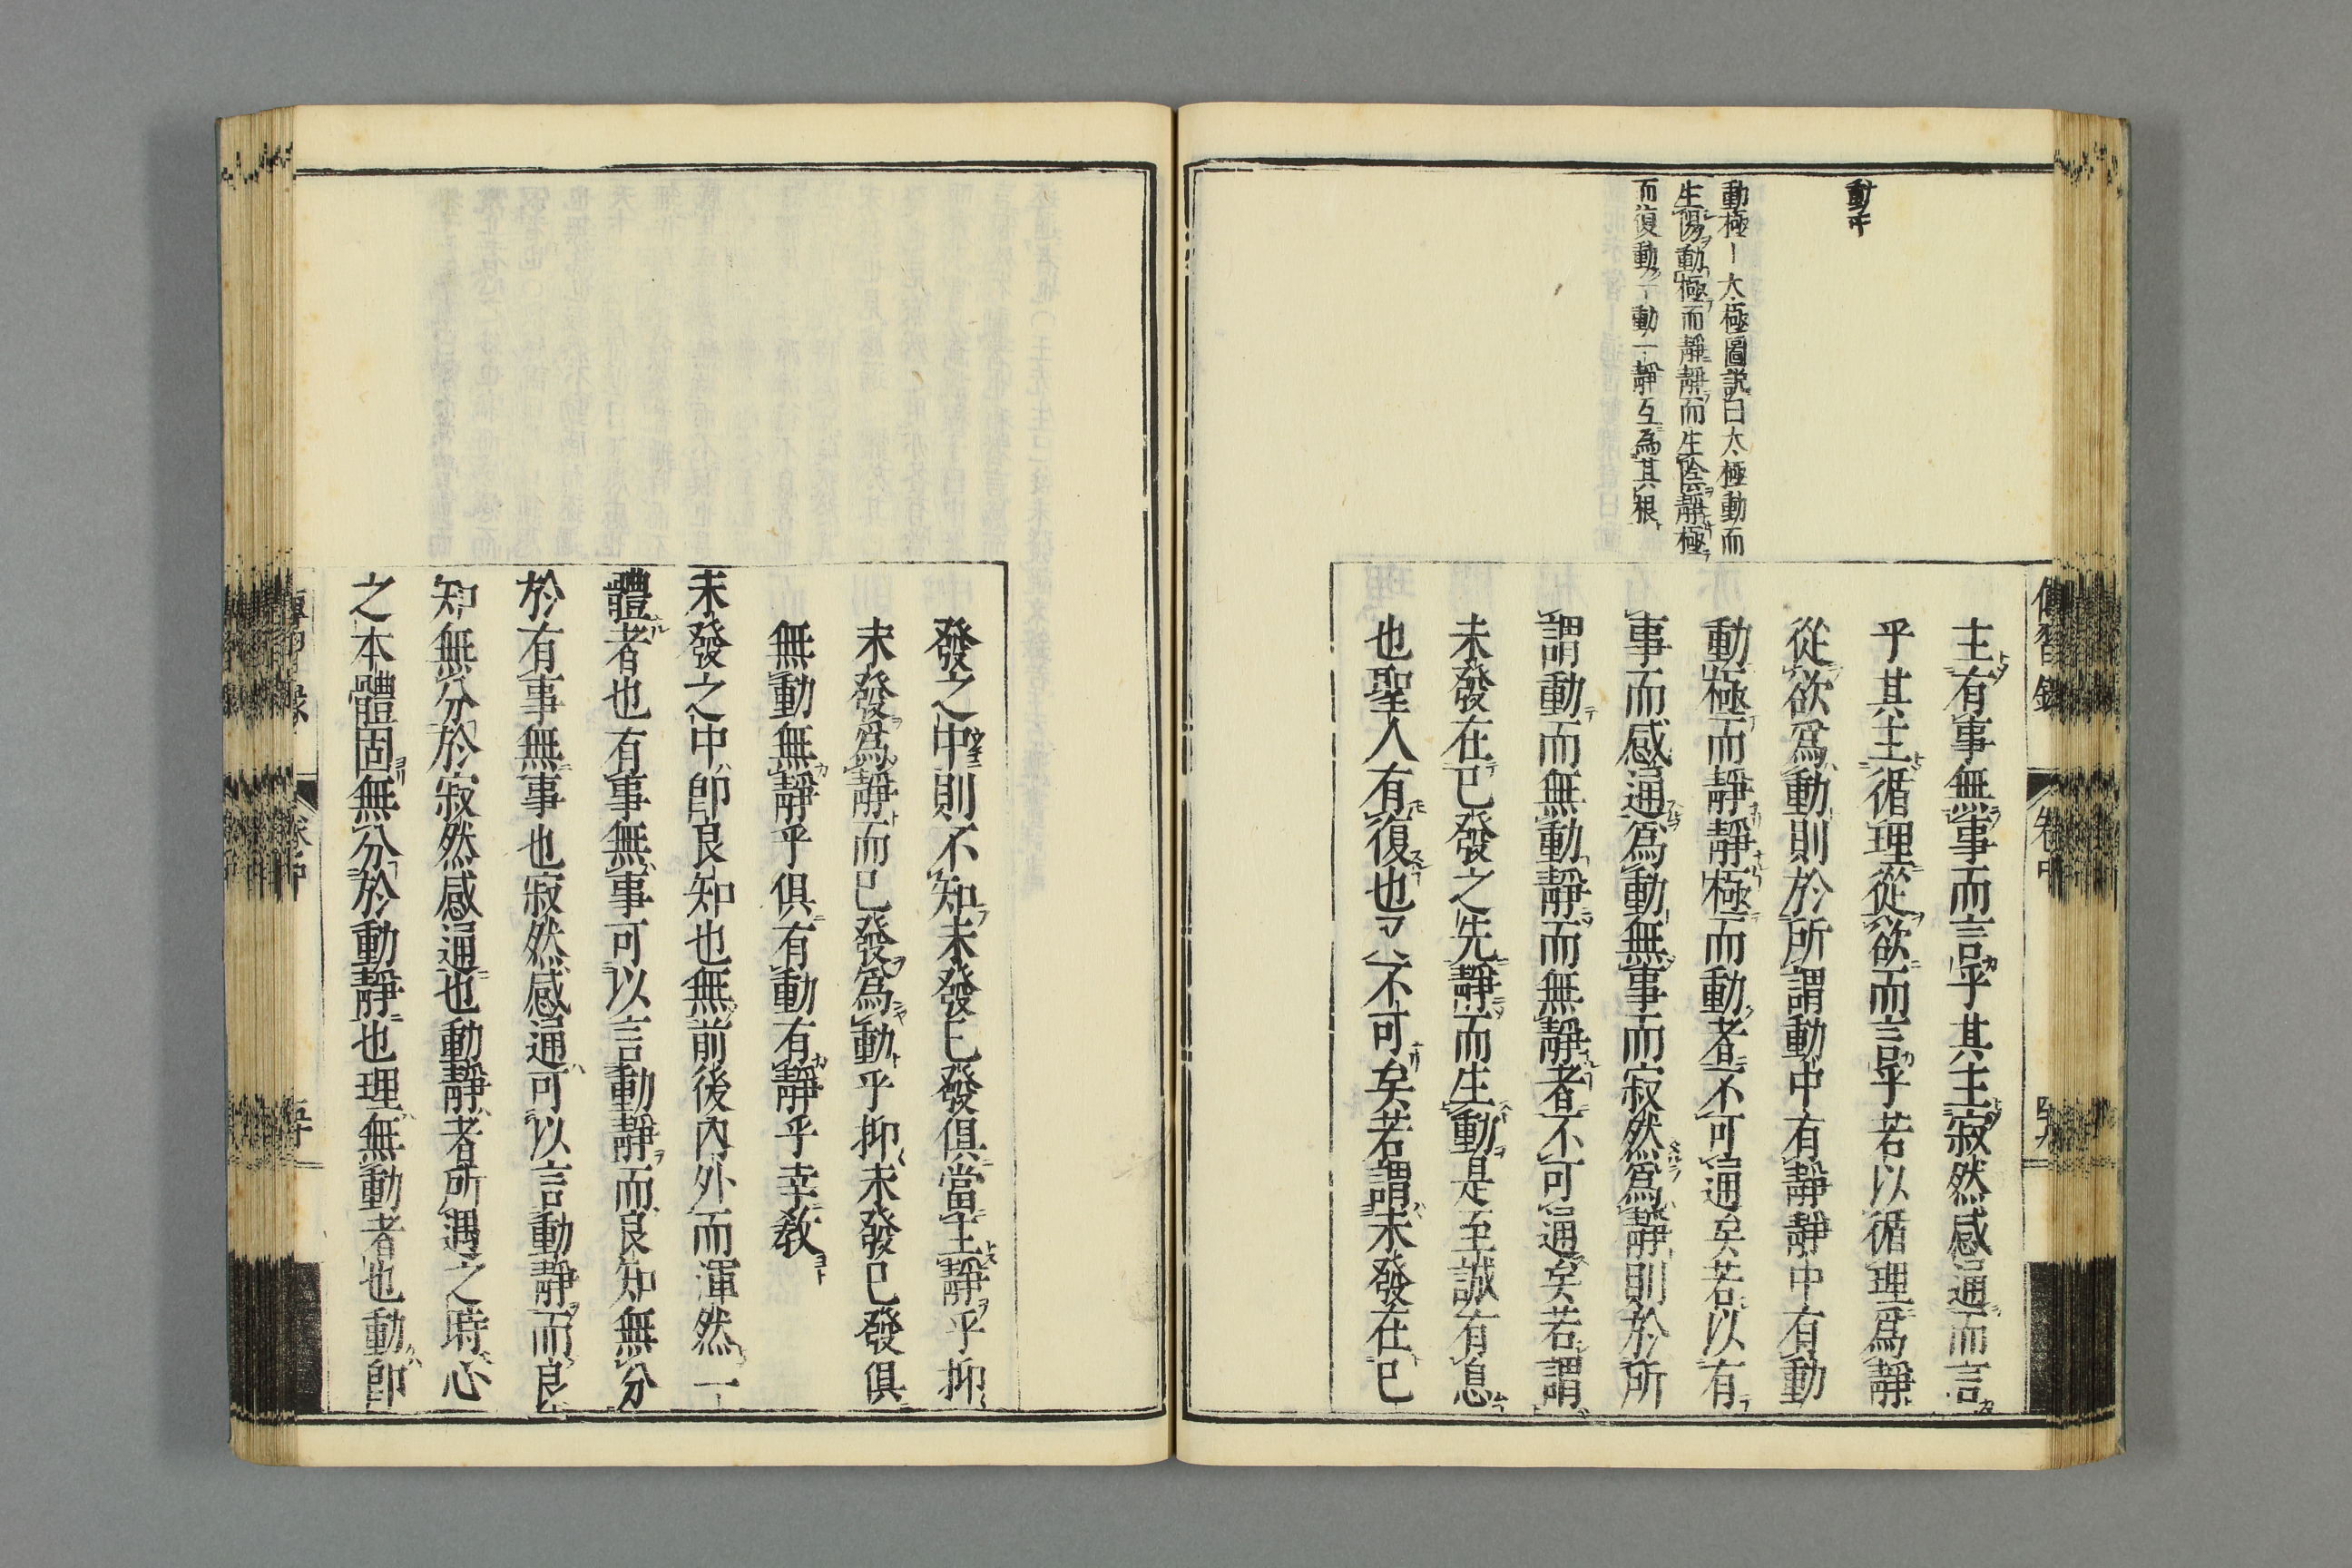 動下
動極ー太極圖説曰太極動而
生陽動極而靜靜而生陰靜極
而復動一動一靜互為其根
傳習錄
卷中
四十九
主有事無事而言乎其主寂然感通而言
乎其主循理從欲而言乎若以循理爲靜
從欲爲動則於所謂動中有靜靜中有動
動極而靜靜極而動者不可通矣若以有
事而感通爲動無事而寂然爲靜則於所
謂動而無動靜而無靜者不可通矣若謂
未發在已發之先靜而生動是至誠有息
也聖人有復也又不可矣若謂未發在已
發之中則不知未發已發俱當主靜乎抑
未發爲靜而已發爲動乎抑未發已發俱
無動無靜乎俱有動有靜乎幸教
未發之中卽良知也無前後內外而渾然一
體者也有事無事可以言動靜而良知無分
於有事無事也寂然感通可以言動靜而良
知無分於寂然感通也動靜者所遇之時心
之本體固無分於動靜也理無動者也動卽
卷中